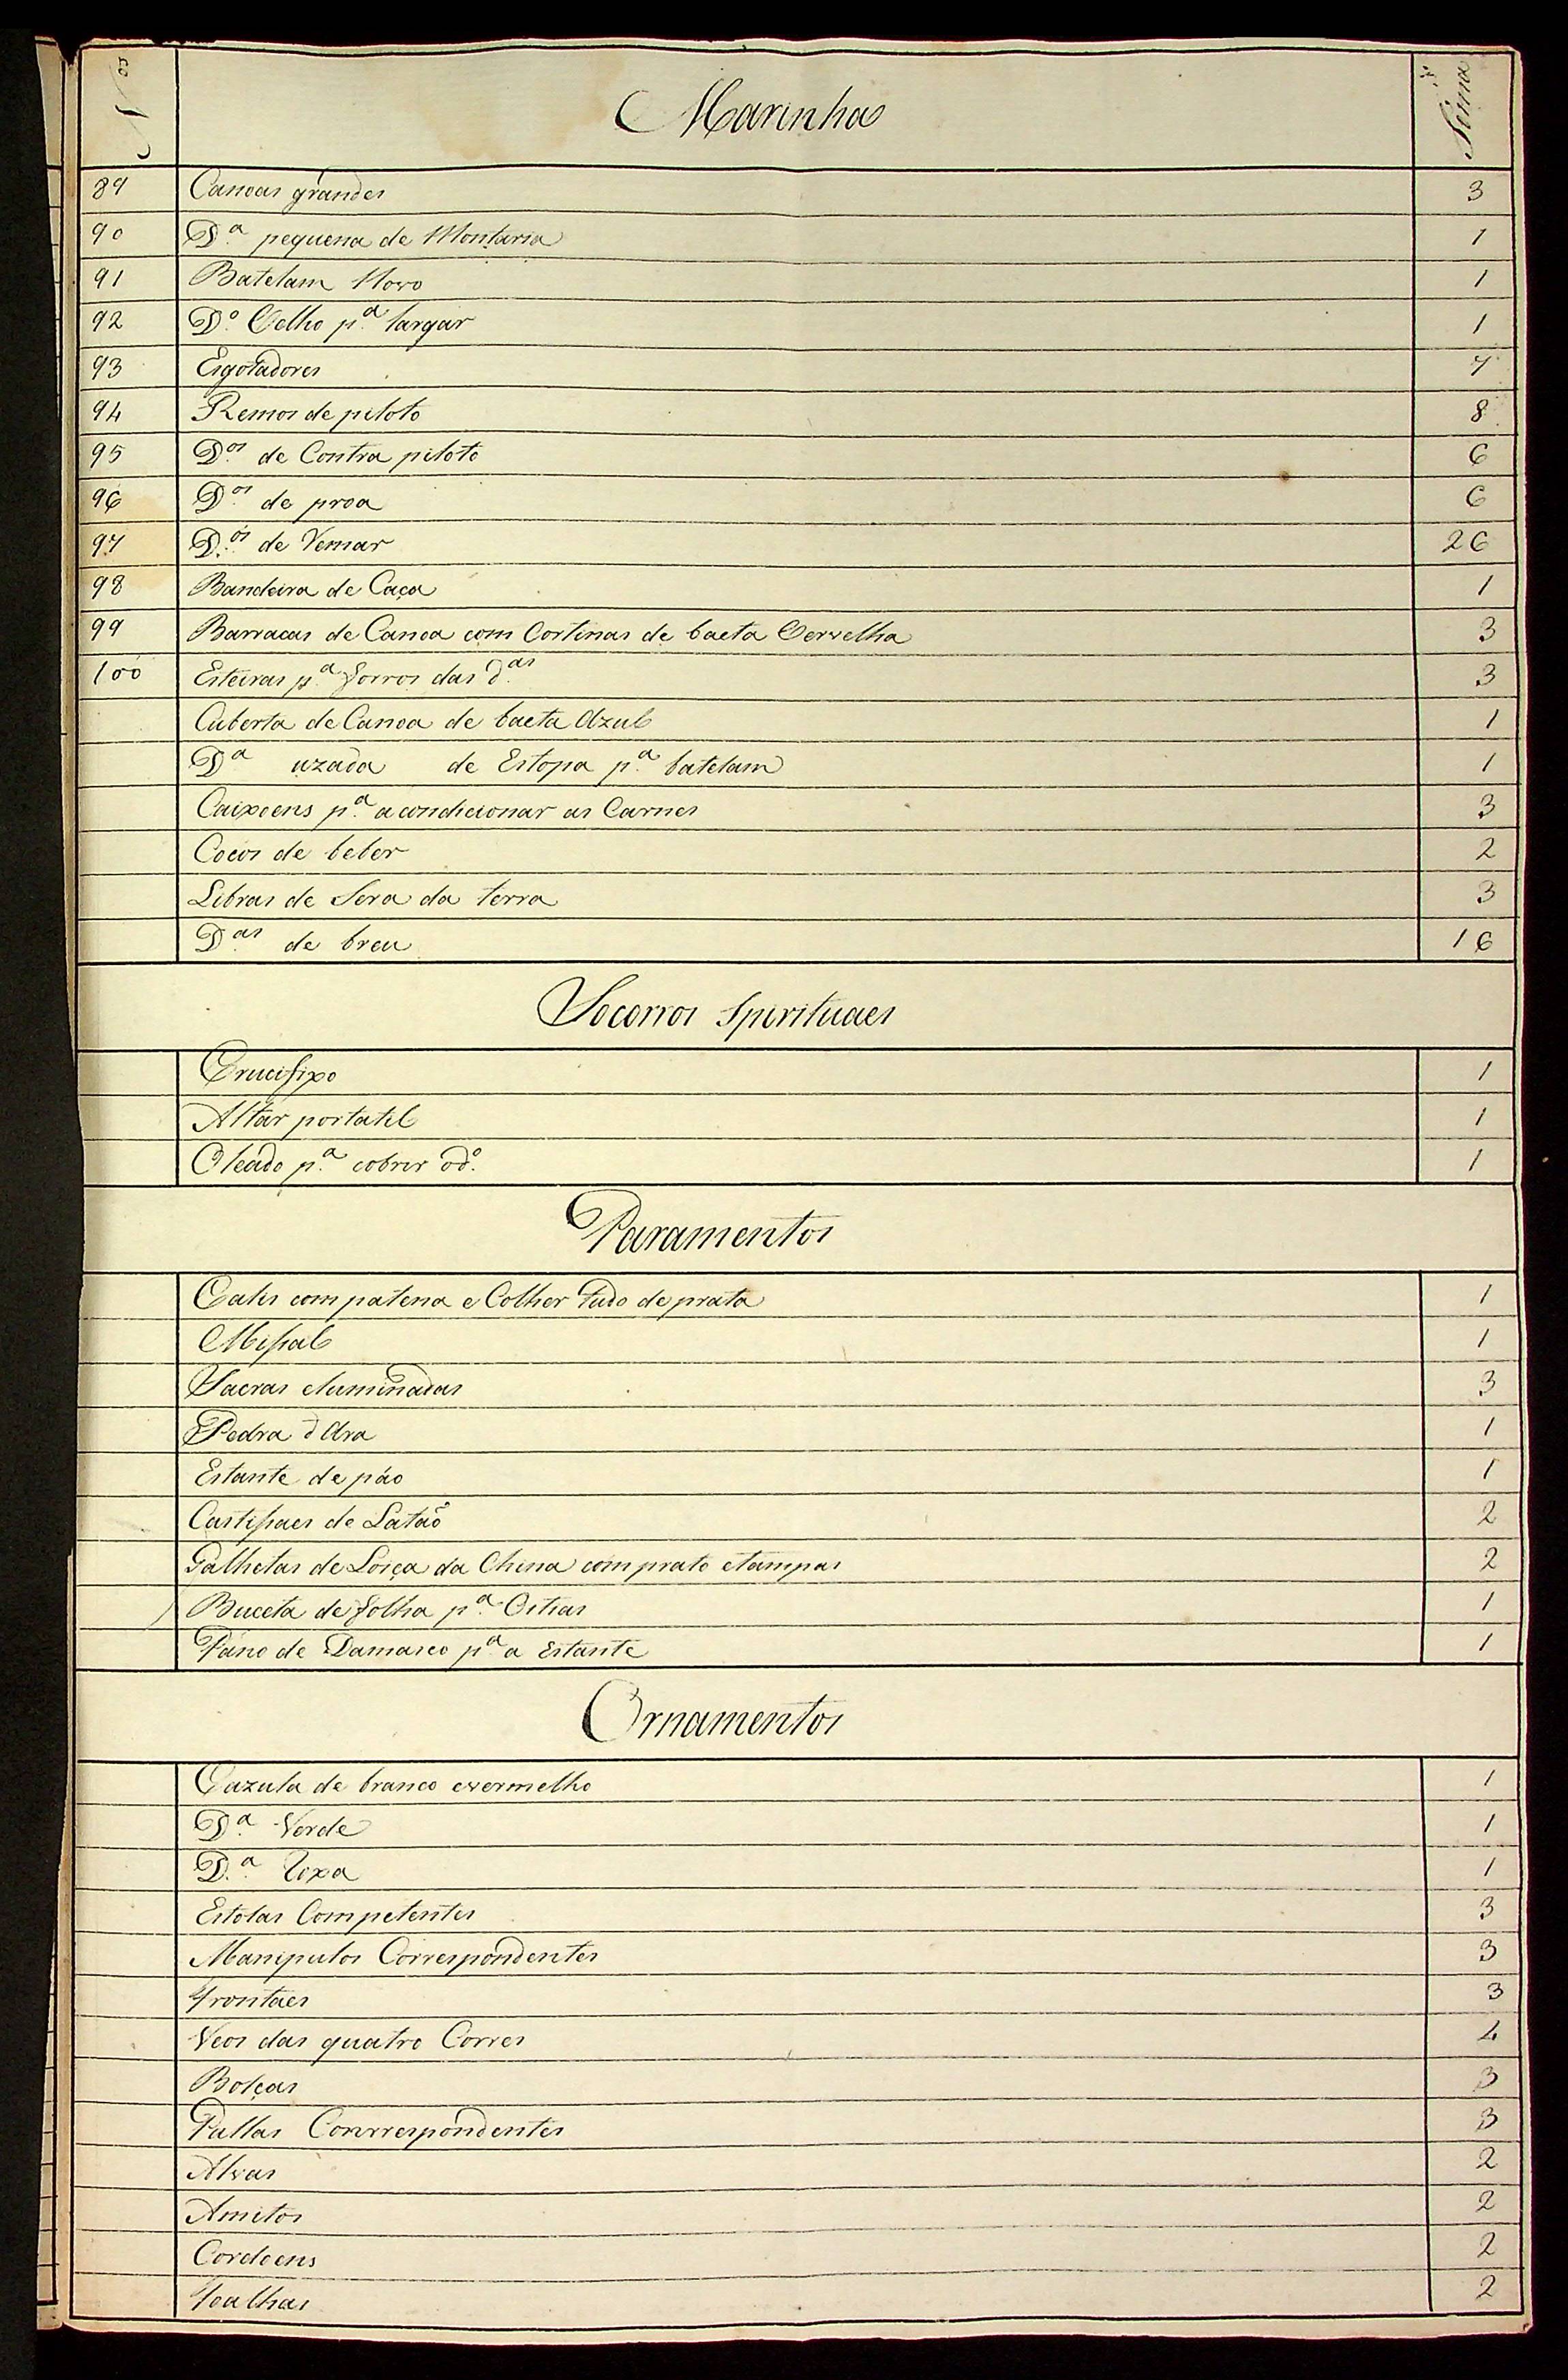 N.os Marinha Sima
89 Canoas grandes 3
90 D.a pequena de Montaria 1
91 Batelam Novo 1
92 D.o Velho p.a largar 1
93 Esgotadores 7
94 Remos de piloto 8
95 D.os de Contra piloto 6
96 D.os de proa 6
97 D.os de Remar 26
98 Bandeira de Caça 1
99 Barracas de Canoa com Cortinas de baeta Vervelha 3
100 Esteiras p.a forros das d.as 3
Cuberta de Canoa de baeta Azul 1
D.a uzada de Estopa p.a batelam 1
Caixoens p.a acondicionar as Carnes 3
Cocos de beber 2
Libras de Sera da terra 3
D.as de breu 16
Socorros Spirituaes
Crucifixo 1
Altar portatil 1
Oleado p.a cobrir od.o 1
Paramentos
Calis com patena e Colher tudo de prata 1
Missal 1
Sacras eluminadas 3
Pedra d Ara 1
Estante de páo 1
Castissaes de Lataõ 2
Galhetas de Loiça da China com prato etampas 2
Buceta de folha p.a Ostias 1
Pano de Damasco p.a a Estante 1
Ornamentos
Cazula de branco evermelho 1
D.a Verde 1
D.a Roxa 1
Estolas Competentes 3
Manipulos Correspondentes 3
Frontaes 3
Veos das quatro Corres 4
Bolças 3
Pallas Conrrespondentes 3
Alvas 2
Amitos 2
Cordoens 2
Toalhas 2